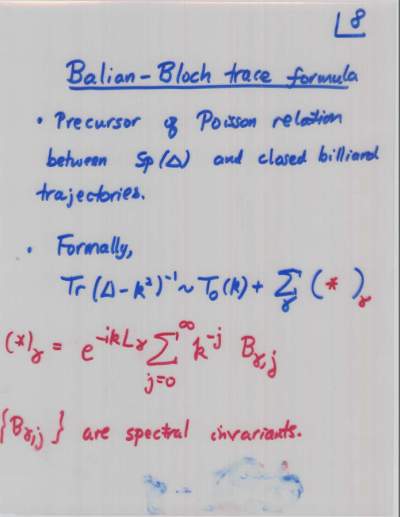 8
Balian-Bloch trace formula
• Precursor of Poisson relation
between Sp(Δ) and closed billiard
trajectories.
• Formally,
Tr(Δ-k²)⁻¹ ~ T₀(k) + Σ_γ (*)_γ
(*)_γ = e^{-ikL_γ} Σ_{j=0}^∞ k^{-j} B_{γ,j}
{B_{γ,j}} are spectral invariants.